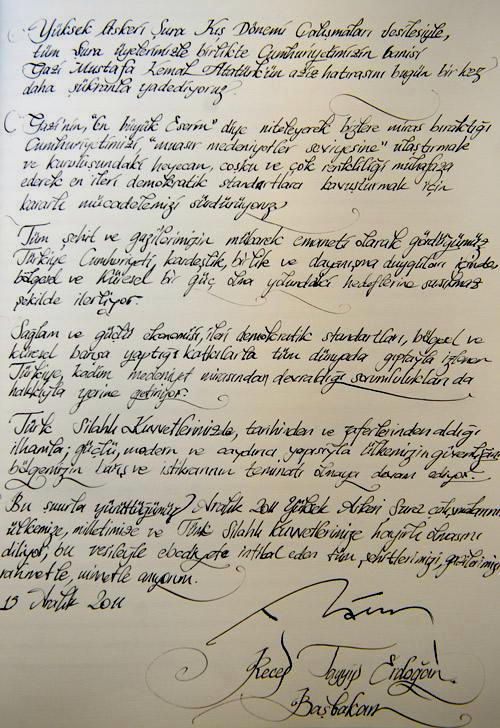 Yüksek Askeri Şura Kış Dönemi Çalışmaları vesilesiyle,
tüm Şura üyelerimizle birlikte Cumhuriyetimizin banisi
Gazi Mustafa Kemal Atatürk'ün aziz hatırasını bugün bir kez
daha şükranla yadediyoruz.
Gazi'nin, "En büyük Eserim" diye niteleyerek bizlere miras bıraktığı
Cumhuriyetimizi, "muasır medeniyetler seviyesine" ulaştırmak
ve kuruluşundaki heyecan, coşku ve çok renkliliği muhafaza
ederek en ileri demokratik standartlara kavuşturmak için
kararlı mücadelemizi sürdürüyoruz.
Tüm şehit ve gazilerimizin mübarek emaneti olarak gördüğümüz
Türkiye Cumhuriyeti, kardeşlik, birlik ve dayanışma duyguları içinde
bölgesel ve küresel bir güç olma yolundaki hedeflerine
şekilde ilerliyor.
Sağlam ve güçlü ekonomisi, ileri demokratik standartları, bölgesel ve
küresel barışa yaptığı katkılarla tüm dünyada gıptayla izlenen
Türkiye, kadim medeniyet mirasından devraldığı sorumlulukları da
hakkıyla yerine getiriyor.
Türk Silahlı Kuvvetlerimizle, tarihinden ve zaferlerinden aldığı
ilhamla; güçlü, modern ve caydırıcı yapısıyla ülkemizin güvenliğinin
bölgemizin barış ve istikrarının teminatı olmaya devam ediyor.
Bu şuurla yürüttüğümüz Aralık 2011 Yüksek Askeri Şura çalışmalarının
ülkemize, milletimize ve Türk Silahlı Kuvvetlerimize hayırlı olmasını
diliyor, bu vesileyle ebediyete intikal eden tüm şehitlerimizi, gazilerimizi
rahmetle, minnetle anıyorum.
13 Aralık 2011
Recep Tayyip Erdoğan
Başbakan